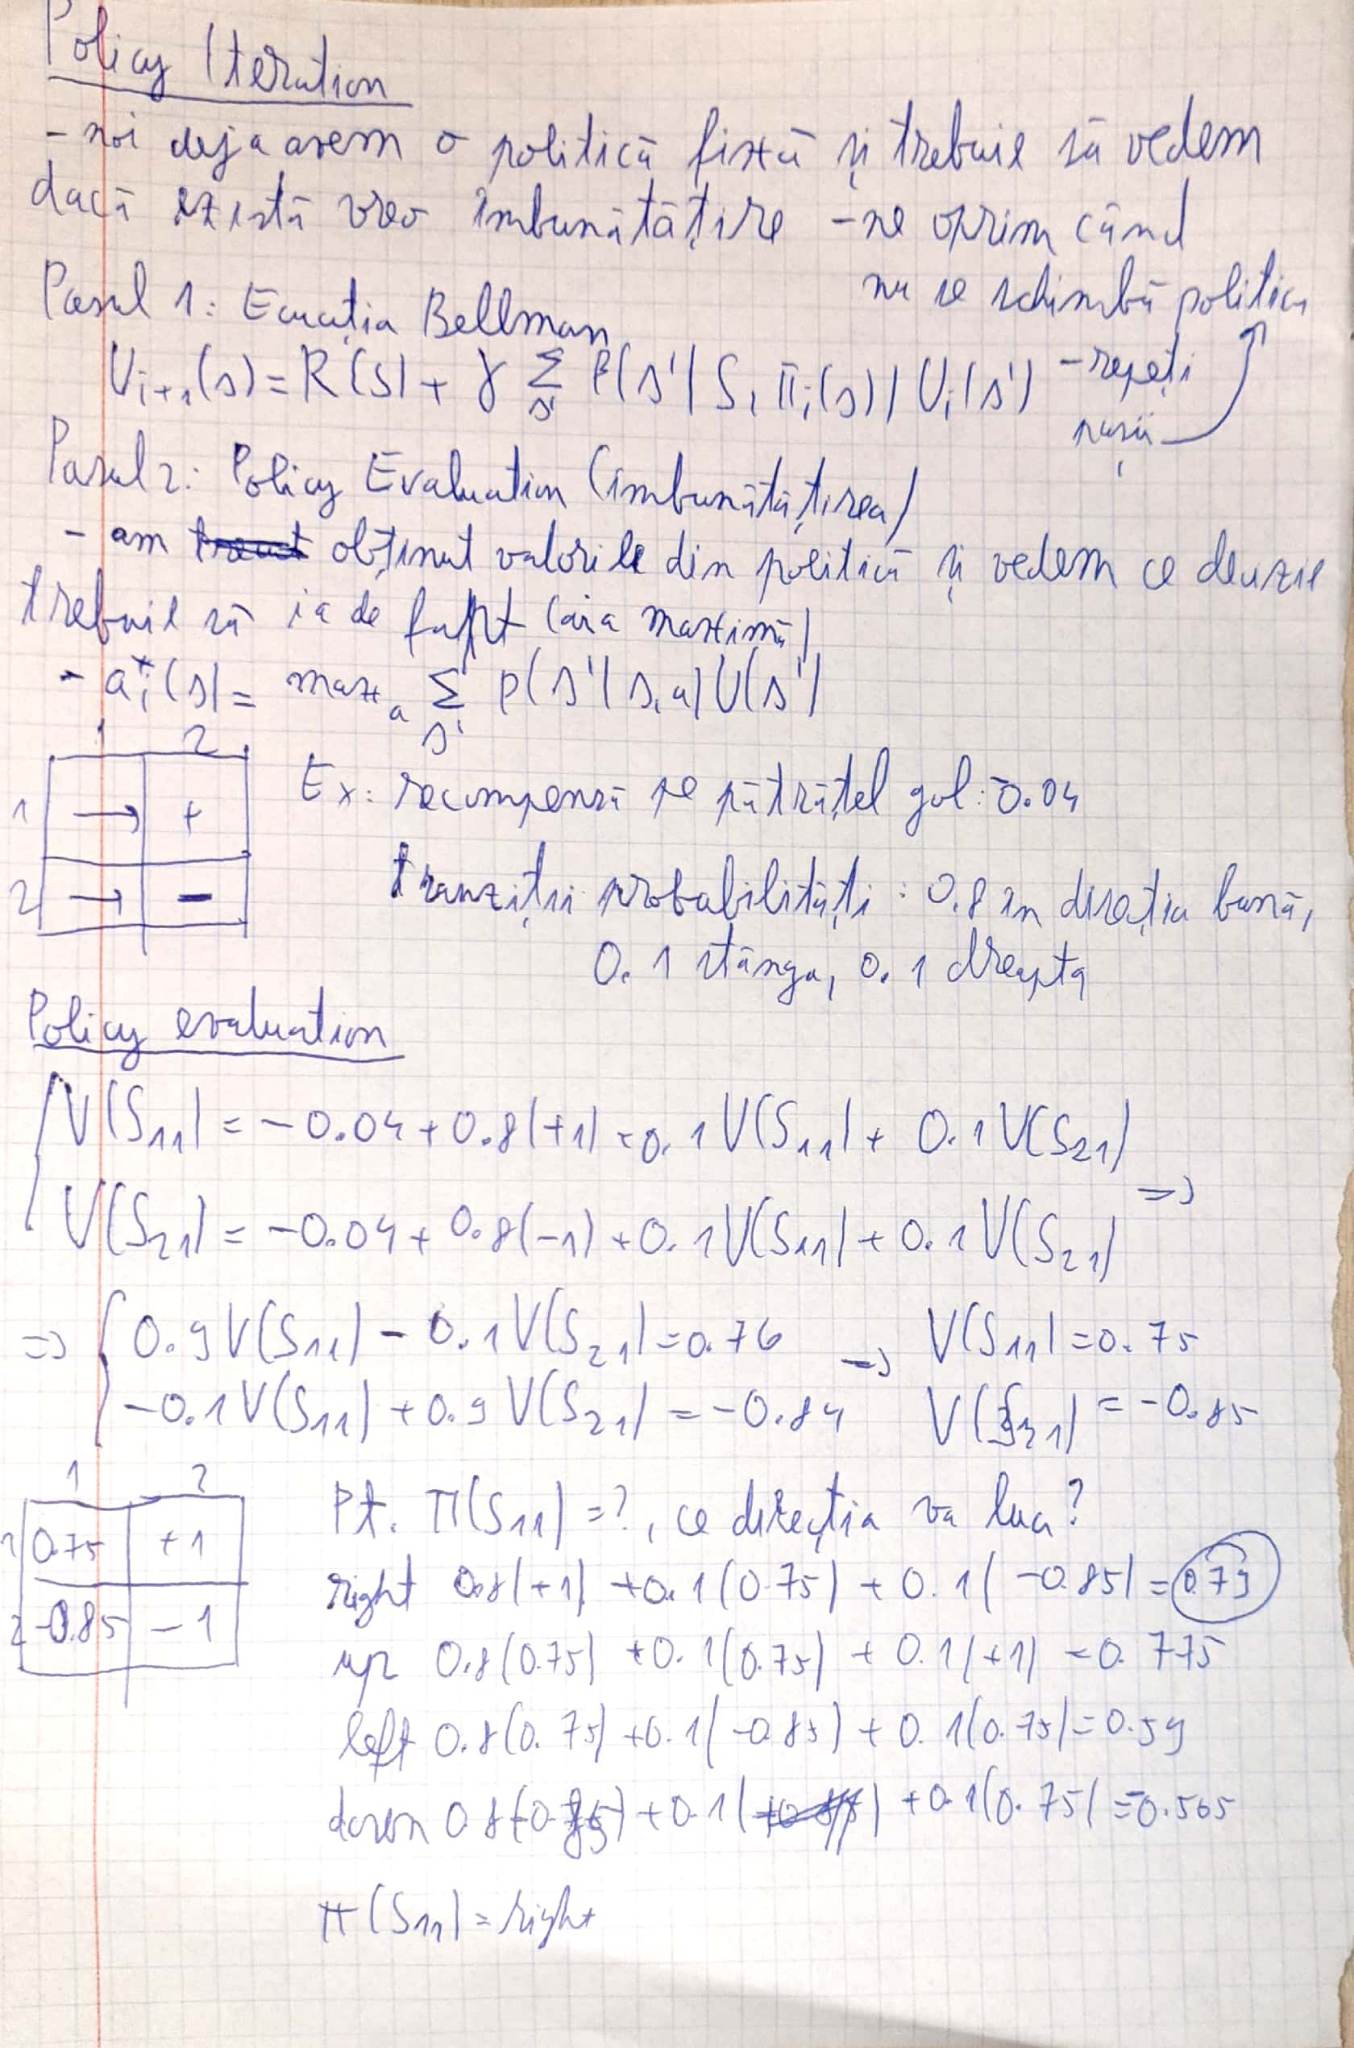 Policy Iteration
- noi deja avem o politică fixă și trebuie să vedem
dacă există vreo îmbunătățire - ne oprim când
nu se schimbă politica
Pasul 1: Ecuația Bellman
U_{i+1}(s) = R(s) + γ Σ_{s'} P(s'|s, π_i(s)) U_i(s') - repeți
pașii
Pasul 2: Policy Evaluation (îmbunătățirea)
- am obținut valorile din politică și vedem ce decizie
trebuie să ia de fapt (aia maximă)
- a*_i(s) = max_a Σ_{s'} P(s'|s,a) U(s')
1 2
1 → +
2 → -
Ex: recompensă pe pătrățel gol: -0.04
tranziții probabilități: 0.8 în direcția bună,
0.1 stânga, 0.1 dreapta
Policy evaluation
V(S11) = -0.04 + 0.8(+1) + 0.1V(S11) + 0.1V(S21)
=>
V(S21) = -0.04 + 0.8(-1) + 0.1V(S11) + 0.1V(S21)
=> { 0.9V(S11) - 0.1V(S21) = 0.76 => V(S11) = 0.75
-0.1V(S11) + 0.9V(S21) = -0.84 V(S21) = -0.85
1 2
1 0.75 +1
2 -0.85 -1
Pt. π(S11) = ?, ce direcția va lua?
right 0.8(+1) + 0.1(0.75) + 0.1(-0.85) = 0.79
up 0.8(0.75) + 0.1(0.75) + 0.1(+1) = 0.775
left 0.8(0.75) + 0.1(-0.85) + 0.1(0.75) = 0.59
down 0.8(-0.85) + 0.1( ) + 0.1(0.75) = -0.505
π(S11) = right